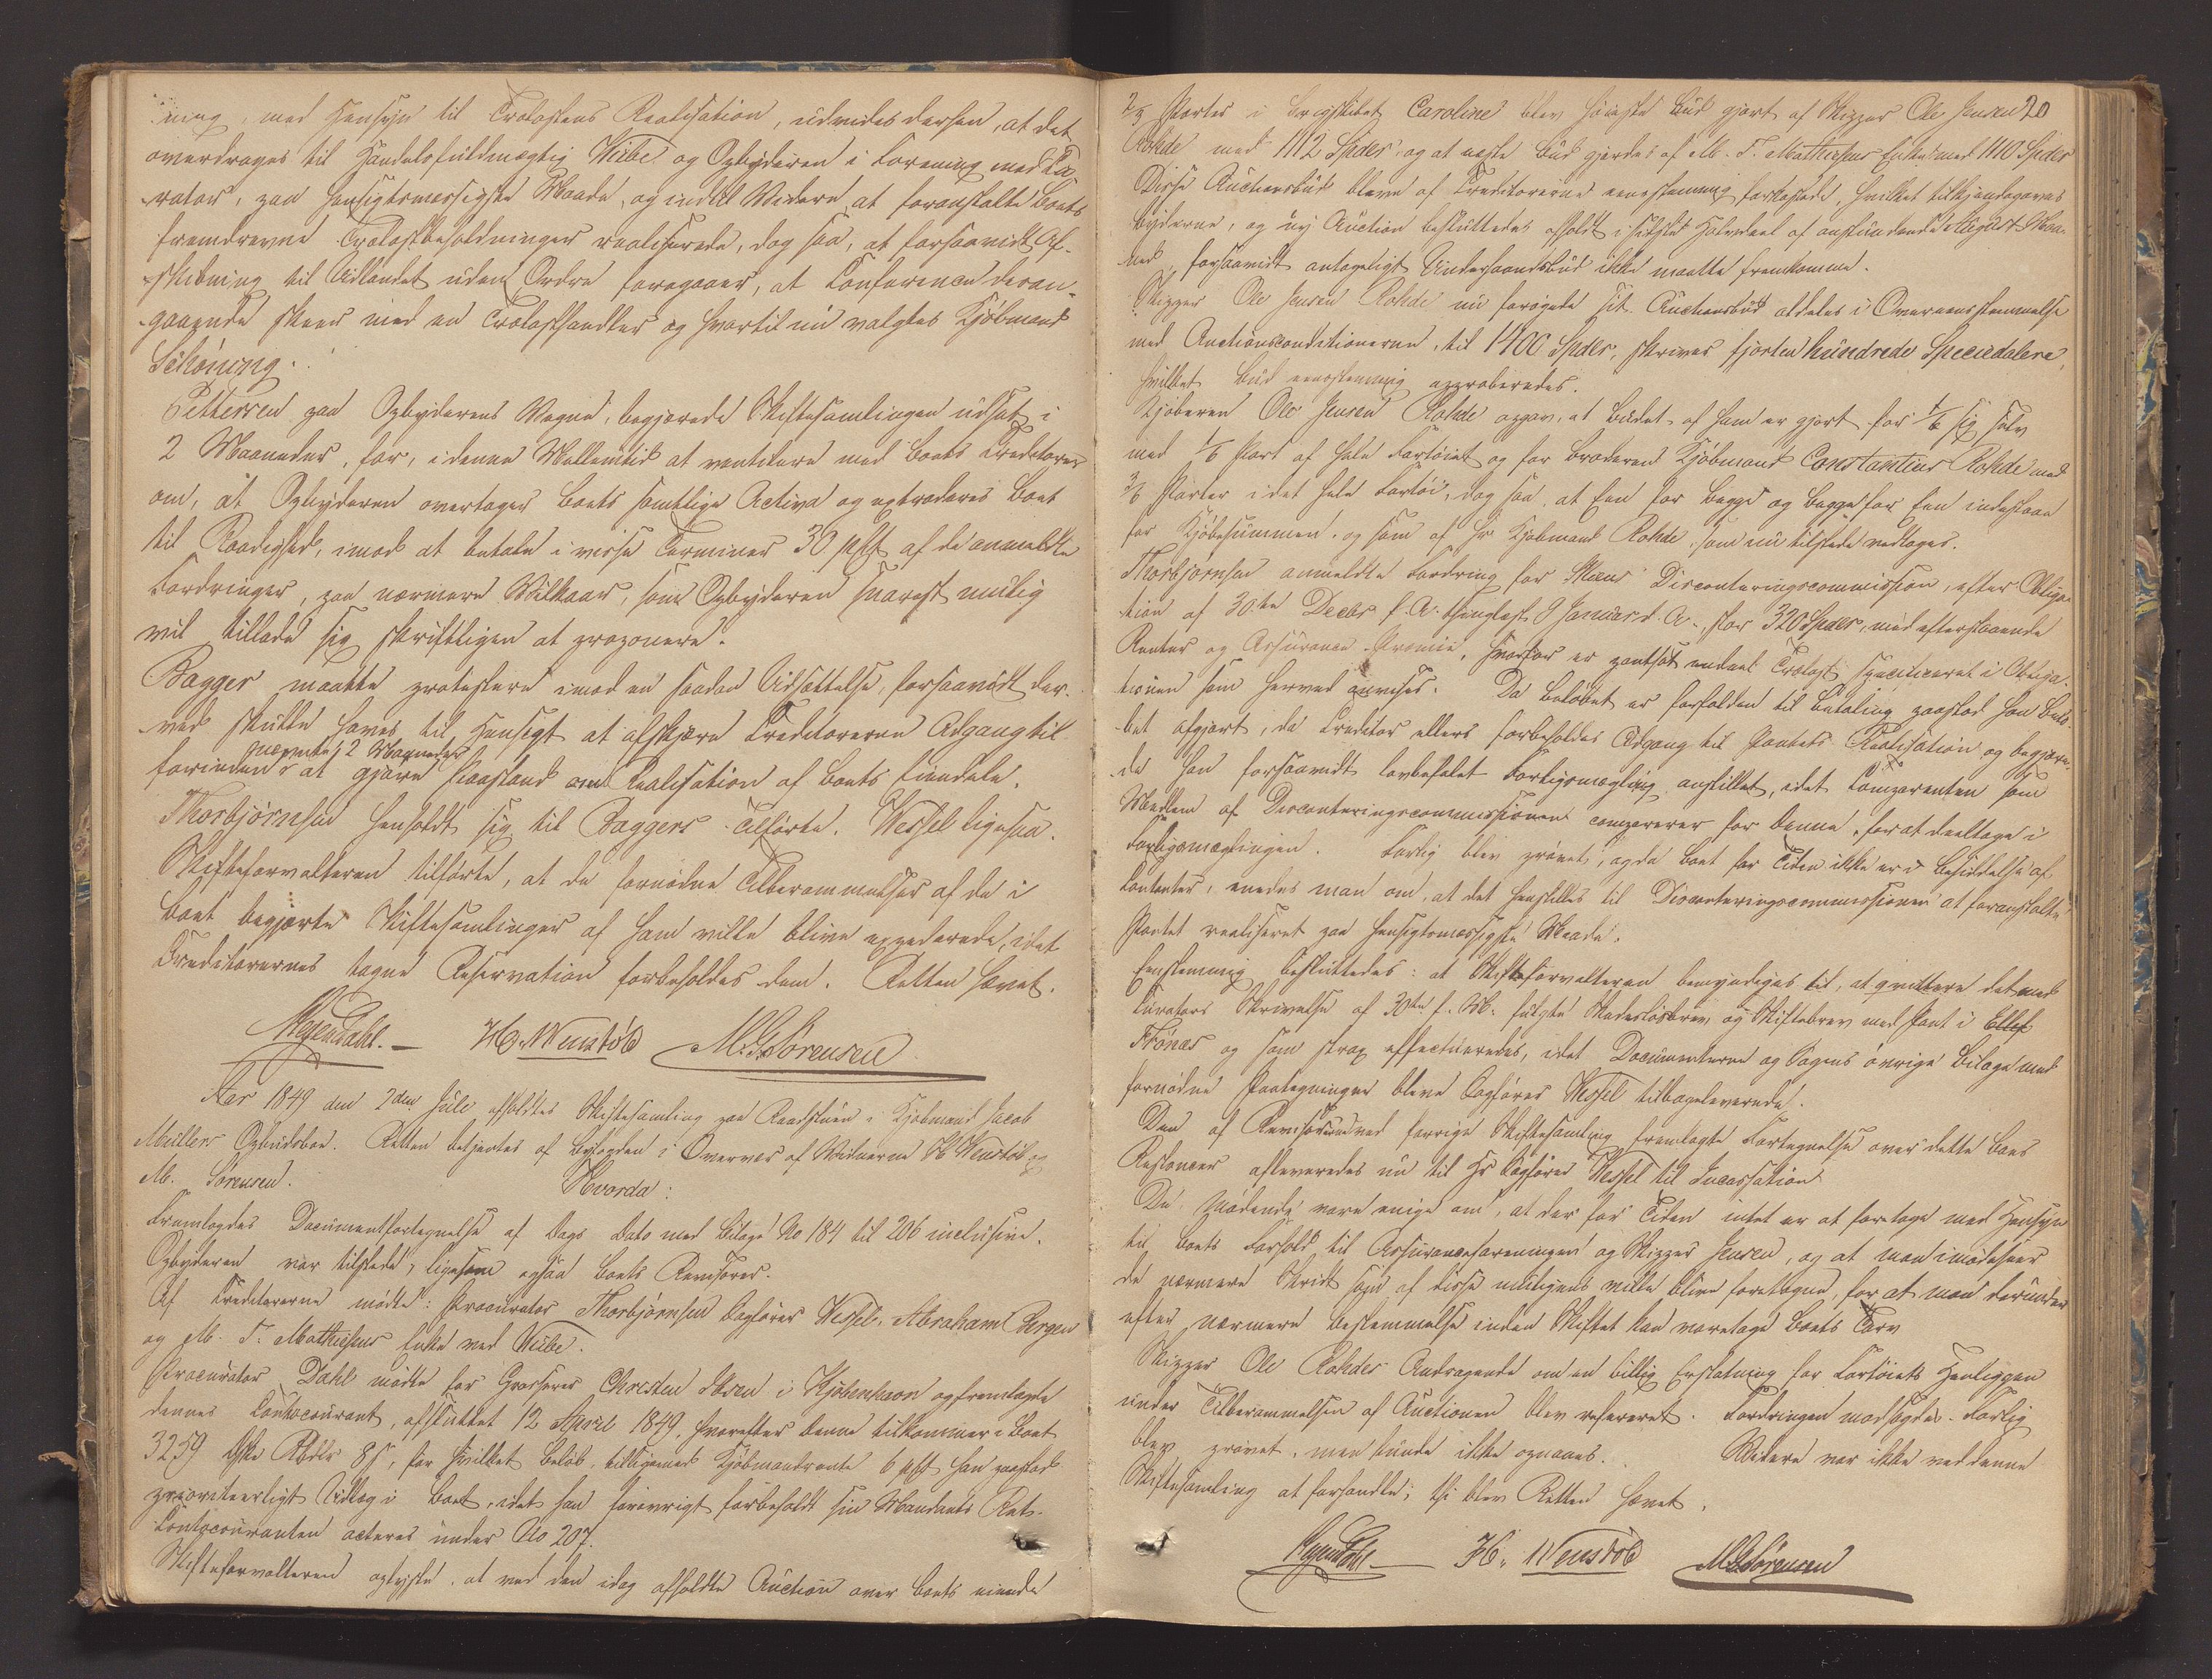 ning, med Hensyn til Trælastens Realisation, udvides derhen, at det
overdrages til Handelsfuldmægtig Weibe og Opbyderen i Forening med Cu-
rator, paa hensigtsmæssigste Maade, og indtil Videre, at foranstalte Boets
fremdrevne Trælastbeholdninger realiserede, dog saa, at forsaavidt Af-
skibning til Udlandet uden Ordre foregaaer, at Conference deran-
gaaende skeer med en Trælasthandler og hvortil nu valgtes Kjøbmand
Schøning.
Pettersen paa Opbyderens Vegne, begjærede Skiftesamlingen udsat i
2 Maaneder, for, i denne Mellemtid at ventilere med Boets Creditorer
om, at Opbyderen overtager Boets samtlige Activa og extraderes Boet
til Raadighed, imod at betale i visse Terminer 30 pCt af de anmeldte
Fordringer, paa nærmere Vilkaar, som Opbyderen snarest mulig
vil tillade sig skriftligen at proponere.
Bagger maatte protestere imod en saadan Udsættelse, forsaavidt der-
ved skulde haves til Hensigt at afskjære Creditorerne Adgang til
forinden nævnte 2 Maaneder at gjøre Paastand om Realisation af Boets Eiendele.
Thorbjørnsen henholdt sig til Baggers Tilførte. Wessel ligesaa.
Skifteforvalteren tilførte, at de fornødne Tilberammelser af de i
Boet begjærte Skiftesamlinger af ham ville blive expederede, idet
Creditorernes tagne Reservation forbeholdes dem. Retten hævet.
Heyerdahl. H. Wenstøb M. G. Sørensen
Aar 1849 den 2den Juli afholdtes Skiftesamling paa Raadstuen i Kjøbmand Jacob
Müllers Opbudsboe. Retten betjentes af Byfogden i Overvær af Vidnerne H. Wenstøb og
M. Sørensen. Hvorda:
Fremlagdes Documentfortegnelse af Dags Dato med Bilage No 184 til 206 inclusive.
Opbyderen var tilstede, ligesom ogsaa Boets Revisorer.
Af Creditorerne mødte: Procurator Thorbjørnsen Sagfører Wessel. Abraham Bergen
og M. T. Mathisens Enke ved Weibe.
Procurator Dahl mødte for Grosserer Christen Ibsen i Kjøbenhavn og fremlagde
dennes Contocourant, afsluttet 12 April 1849, hvorefter denne tilkommer i Boet
3259 dske Rbdlr 8 s, for hvilket Beløb, tilligemed Kjøbmandsrente 6 pCt han paastod
prioriteerligt Udlæg i Boet, idet han forøvrigt forbeholdt sin Mandants Ret.
Contocouranten acteres under No 207.
Skifteforvalteren oplyste, at ved den idag afholdte Auction over Boets eiende
20
2/3 Parter i Brigskibet Caroline blev høieste Bud gjort af Skipper Ole Jensen
Rohde med 1112 Spdlr, og at næste Bud gjordes af M. T. Mathisens Enke med 1110 Spdlr
Disse Auctionsbud bleve af Creditorerne eenstemmig forkastede, hvilket tilkjendegaves
byderne, og ny Auction besluttedes afholdt i sidste Halvdeel af anstundende August Maa-
ned, forsaavidt antageligt Underhaandsbud ikke maatte fremkomme.
Skipper Ole Jensen Rohde nu forøgede sit Auctionsbud aldeles i Overeensstemmelse
med Auctionsconditionerne, til 1400 Spdlr, skriver fjorten hundrede Speciedalere,
hvilket Bud eenstemmig approberedes.
Kjøberen Ole Jensen Rohde opgav, at Budet af ham er gjort for sig selv
med 1/6 Part af hele Fartøiet og for Broderen Kjøbmand Constantius Rohde med
3/6 Parter i det hele Fartøi, dog saa, at Een for Begge og Begge for Een indestaae
for Kjøbesummen, og som af Hr Kjøbmand Rohde, som nu tilstede vedtoges.
Thorbjørnsen anmeldte Fordring for Skiens Disconteringscommission, efter Obliga-
tion af 30te Decbr f. A. thinglæst 9 Januar d. A., stor 320 Spdlr, med efterstaaende
Renter og Assurance Præmie, hvorfor er pantsat endeel Trælast specificeret i Obliga-
tionen som herved anvises. Da Beløbet er forfalden til Betaling paastod han Belø-
bet afgjort, da Creditor ellers forbeholdes Adgang til Pantets Realisation og begjære-
de han forsaavidt lovbefalet Forligsmægling anstillet, idet Comparenten som
Medlem af Disconteringscommissionen comparerer for denne, for at deeltage i
Forligsmæglingen. Forlig blev prøvet, og da Boet for Tiden ikke er i Besiddelse af
Contanter, enedes man om, at det henstilles til Disconteringscommissionen at foranstalte
Pantet realiseret paa hensigtsmæssigste Maade.
Eenstemmig besluttedes: at Skifteforvalteren bemyndiges til, at qvittere det med
Curators Skrivelse af 30te f. M. fulgte Skadesløsbrev og Skiftebrev med Pant i Ellef
Frønæs og som strax effectueredes, idet Documenterne og Sagens øvrige Bilage med
fornødne Paategninger bleve Sagfører Wessel tilbageleverede.
Den af Revisorerne ved forrige Skiftesamling fremlagte Fortegnelse over dette Boes
Restancer afleveredes nu til Hr Sagfører Wessel til Incassation
De Mødende vare enige om, at der for Tiden intet er at foretage med Hensyn
til Boets Forhold til Assuranceforeningen og Skipper Jensen, og at man imødeseer
de nærmere Skridt som af disse muligens ville blive foretagne, for at man derunder
efter nærmere Bestemmelse inden Skiftet kan varetage Boets Tarv
Skipper Ole Rohdes Andragende om en billig Erstatning for Fartøiets Henliggen
under Tilberammelsen af Auctionen blev refereret. Fordringen modsagdes. Forlig
blev prøvet, men kunde ikke opnaaes. Videre var ikke ved denne
Skiftesamling at forhandle; thi blev Retten hævet.
Heyerdahl H. Wenstøb M. G. Sørensen